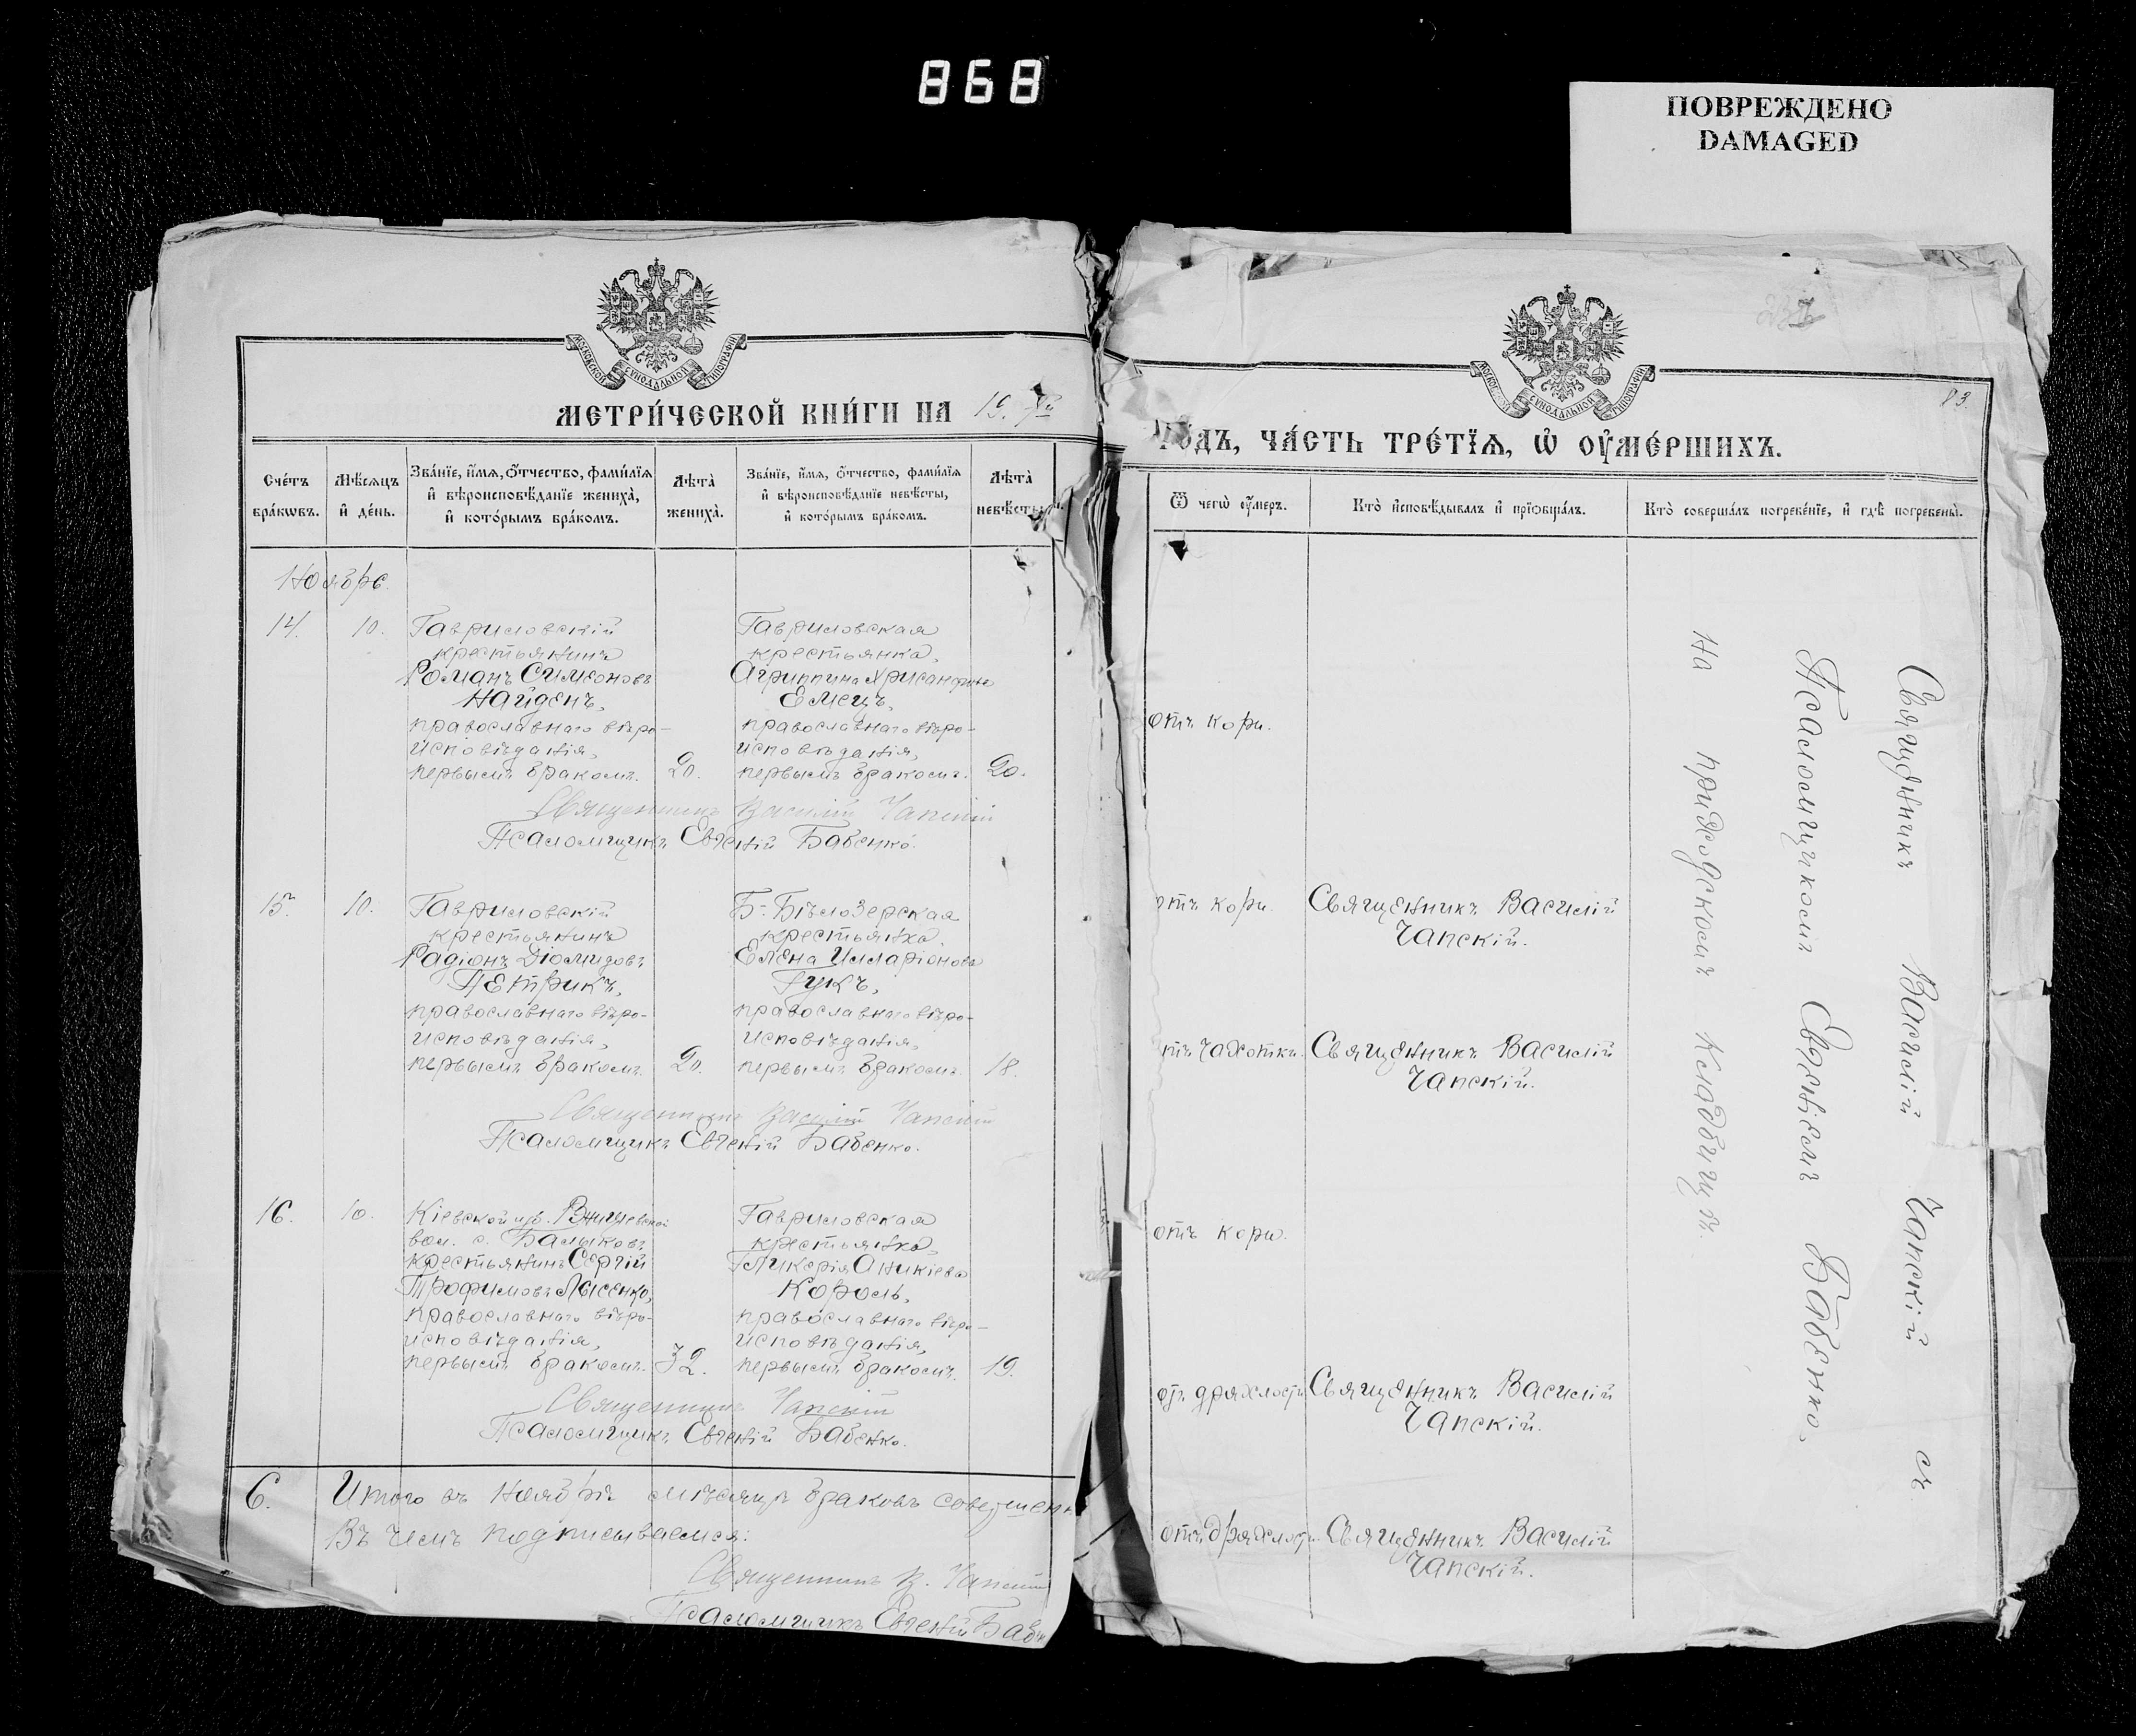 868
ПОВРЕЖДЕНО
DAMAGED
МОСКОВСКОЙ СѴНОДАЛЬНОЙ ТИПОГРАФІИ
МЕТРИ́ЧЕСКОЙ КНИ́ГИ НА 19
Сче́тъ бра́кѡвъ.
Мѣ́сяцъ и҆ де́нь.
Зва́нїе, и҆́мѧ, ѻ҆́тчество, фами́лїѧ
и҆ вѣроисповѣ́данїе жениха̀,
и҆ кото́рымъ бра́комъ.
Лѣта̀ жениха̀.
Зва́нїе, и҆́мѧ, ѻ҆́тчество, фами́лїѧ
и҆ вѣроисповѣ́данїе невѣ́сты,
и҆ кото́рымъ бра́комъ.
Лѣта̀
невѣ́сты
Ноябрь.
14. 10.
Гавриловскій
крестьянинъ
Романъ Симеоновъ
Найденъ,
православнаго вѣро-
исповѣданія,
первымъ бракомъ. 20.
Гавриловская
крестьянка,
Агриппина Хрисанфова
Емецъ,
православнаго вѣро-
исповѣданія,
первымъ бракомъ. 20.
Священникъ Василій Чапскій
Псаломщикъ Евгеній Бабенко.
15. 10.
Гавриловскій
крестьянинъ
Радіонъ Діомидовъ
Петрикъ,
православнаго вѣро-
исповѣданія,
первымъ бракомъ. 20.
Б.-Бѣлозерская
крестьянка,
Елена Илларіонова
Гукъ,
православнаго вѣро-
исповѣданія,
первымъ бракомъ. 18.
Священникъ Василій Чапскій
Псаломщикъ Евгеній Бабенко.
16. 10.
Кіевской губ.
вол. с. Балыковъ
крестьянинъ Сергій
Трофимовъ Лысенко,
православнаго вѣро-
исповѣданія,
первымъ бракомъ. 32.
Гавриловская
крестьянка,
Гликерія Аникіева
Король,
православнаго вѣро-
исповѣданія,
первымъ бракомъ. 19.
Священникъ Чапскій
Псаломщикъ Евгеній Бабенко.
6. Итого въ Ноябрѣ мѣсяцѣ браковъ совершен
Въ чемъ подписываемся:
Священникъ В. Чапскій
Псаломщикъ Евгеній Баб
83.
МОСКОВСКОЙ СѴНОДАЛЬНОЙ ТИПОГРАФІИ
ГО́ДЪ, ЧА́СТЬ ТРЕ́ТЇѦ, Ѡ҆ ОУ҆МЕ́РШИХЪ.
Ѿ чегѡ̀ оу҆́меръ.
Кто̀ и҆сповѣ́дывалъ и҆ прїѻбща́лъ.
Кто̀ соверша́лъ погребе́нїе, и҆ гдѣ̀ погребены̀.
отъ кори.
отъ кори. Священникъ Василій
Чапскій.
тъ чахотки. Священникъ Василій
Чапскій.
отъ кори.
отъ дряхлости Священникъ Василій
Чапскій.
отъ дряхлости Священникъ Василій
Чапскій.
Священникъ Василій Чапскій съ
Псаломщикомъ Евгеніемъ Бабенко,
На приходскомъ кладбищѣ.